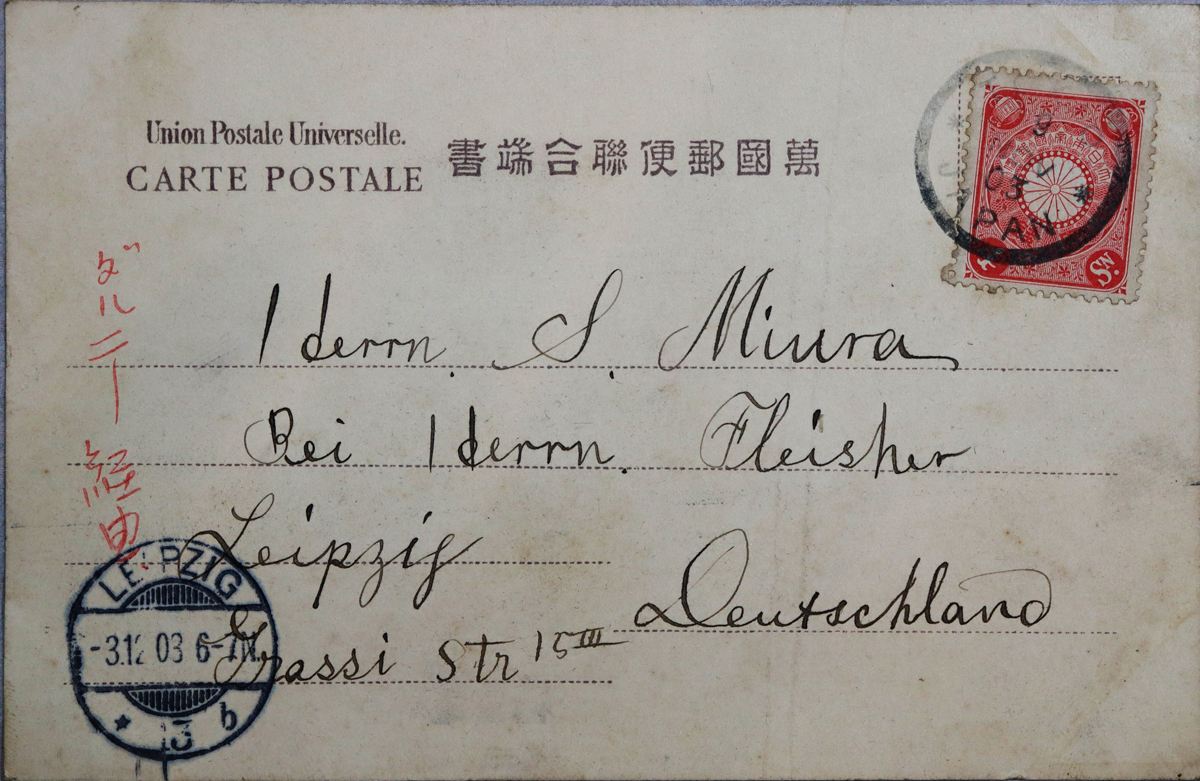 Union Postale Universelle.
CARTE POSTALE
書端合聯便郵國萬
ダルニー経由
Herrn. S. Miura
Bei Herrn. Fleisher
Leipzig
Deutschland
Grassi Str 15 III
LEIPZIG
-3.12 03 6-7N.
* 13 b
PAN
4
Sn.